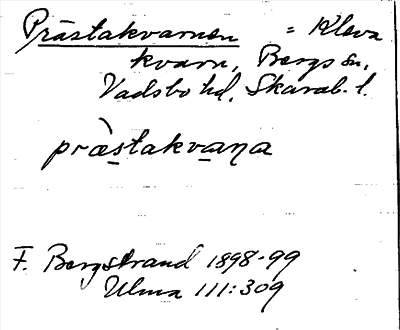 Prästakvarnen = Kleva
kvarn, Bergs sn,
Vadsbo hd, Skarab. l.
pràstakvaṇa
F. Bergstrand 1898-99
Ulma 111:309